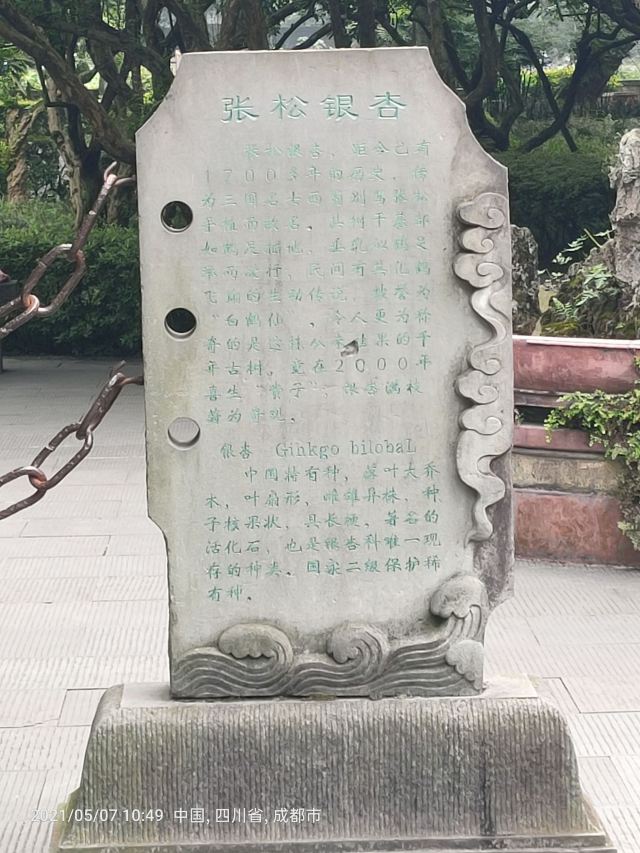 张松银杏
张松银杏，距今已有
1700多年的历史，传
为三国名士西蜀别驾张松
手植而故名。其树干基部
如鹤足抓地，垂乳似鹤足
举而欲行，民间有其化鹤
飞翔的生动传说，故誉为
“白鹤仙”。令人更为称
奇的是这株公不结果的千
年古树，竟在2000年
喜生“贵子”，银杏满枝
蔚为奇观。
银杏 Ginkgo bilobaL
中国特有种，落叶大乔
木，叶扇形，雌雄异株，种
子核果状，具长梗，著名的
活化石，也是银杏科唯一现
存的种类。国家二级保护稀
有种。
2021/05/07 10:49 中国,四川省,成都市